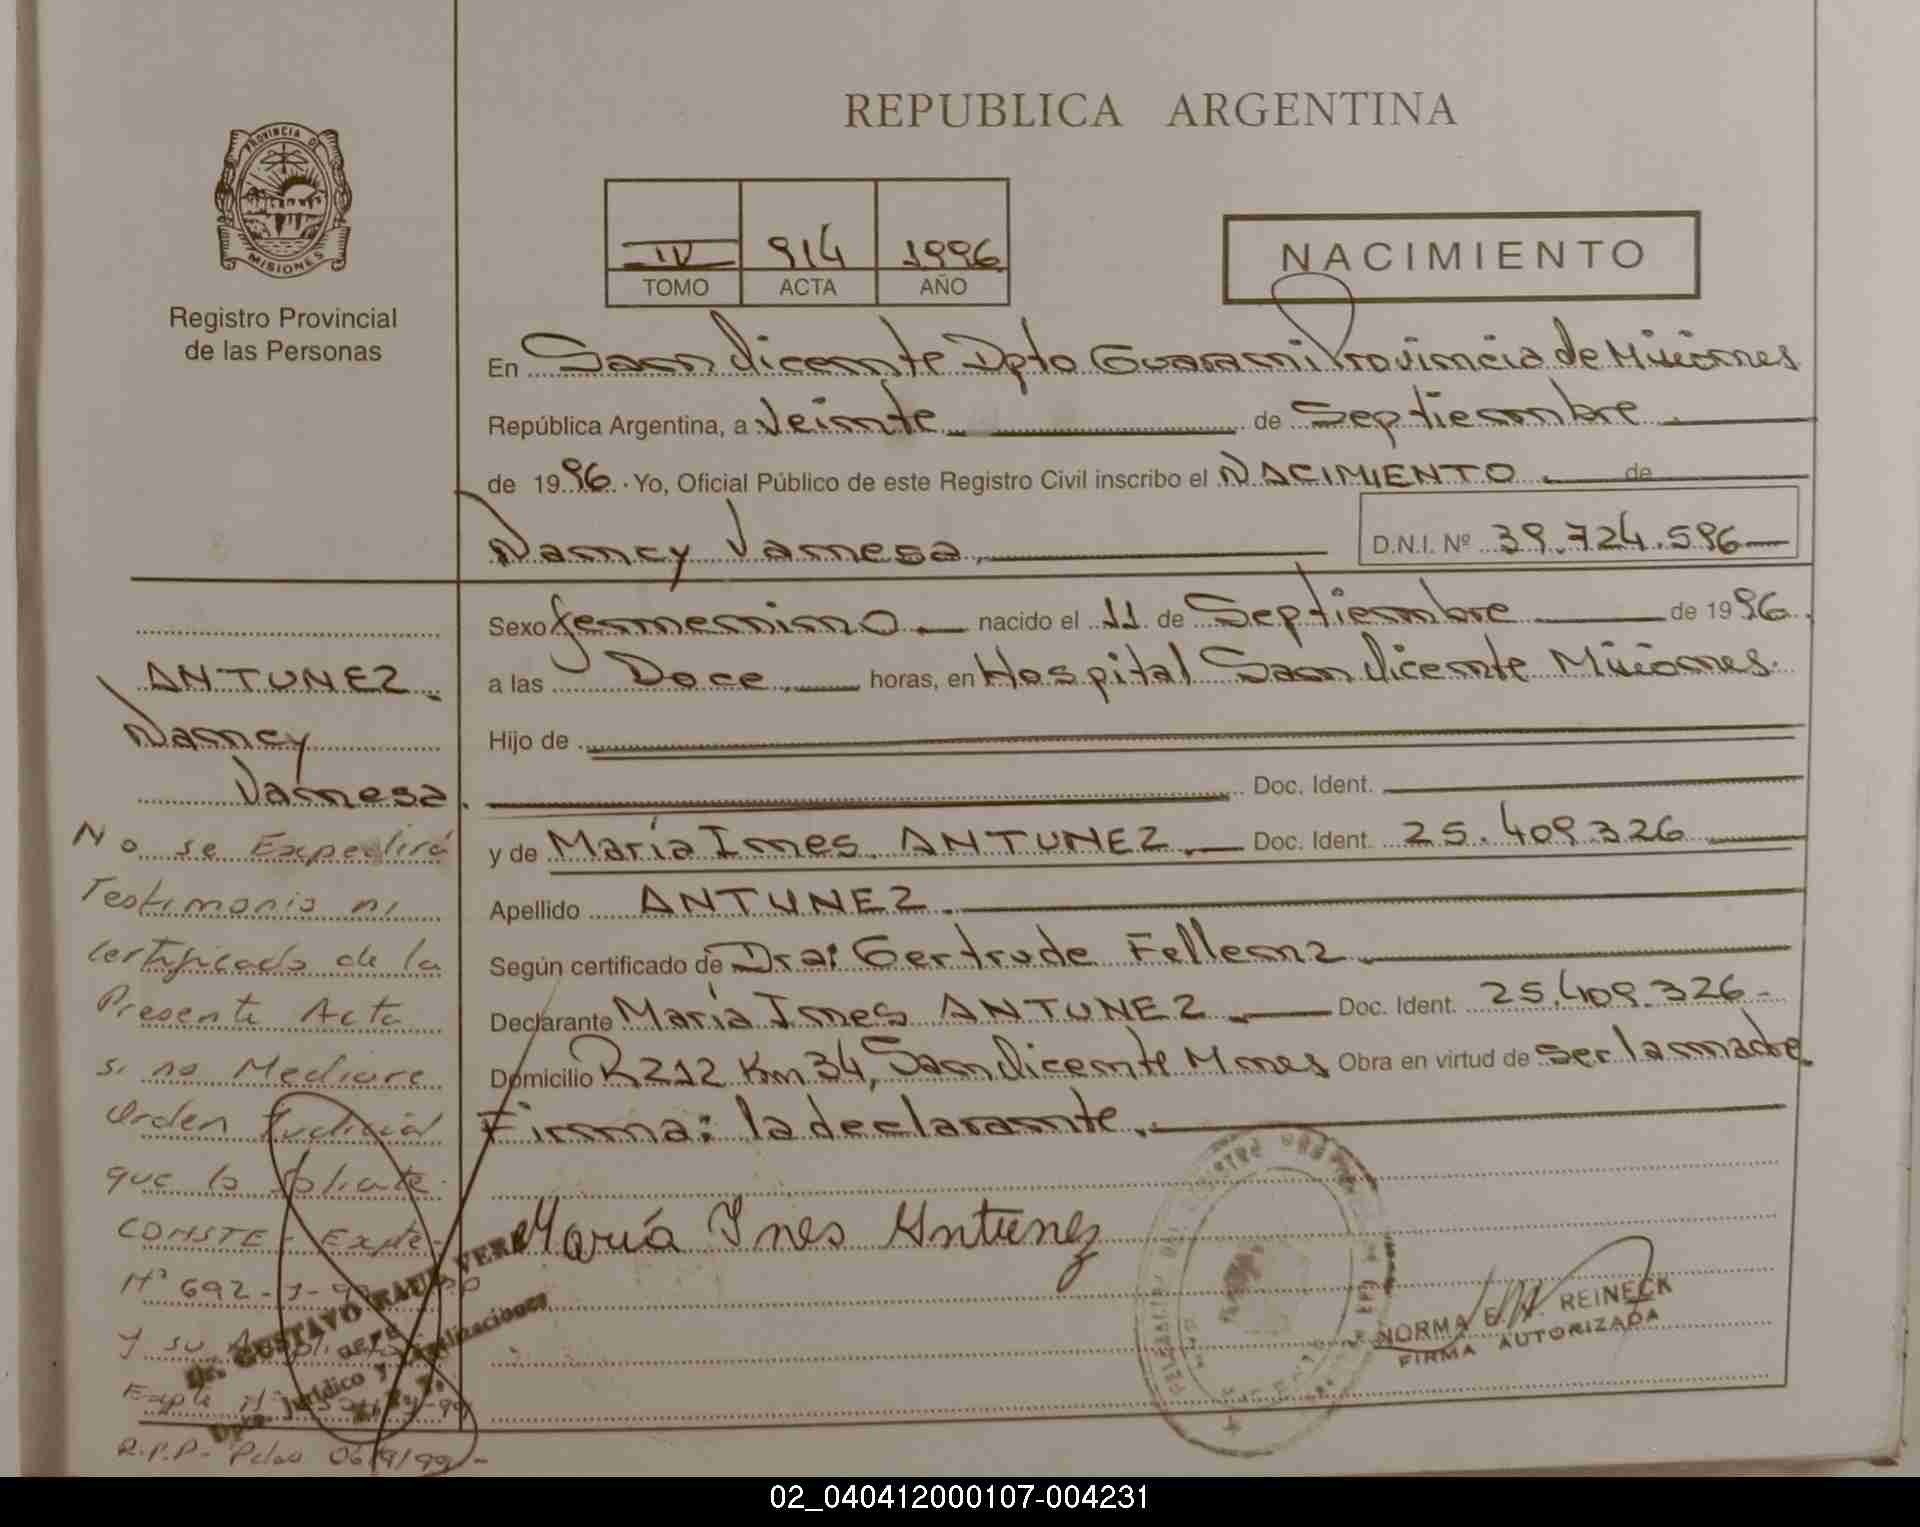 REPUBLICA ARGENTINA
PROVINCIA DE
MISIONES
Registro Provincial
de las Personas
IV 914 1996
TOMO ACTA AÑO
NACIMIENTO
En San Vicente Dpto Guarani Provincia de Misiones
República Argentina, a Veinte de Septiembre
de 1996. Yo, Oficial Público de este Registro Civil inscribo el NACIMIENTO de
Nancy Vanesa D.N.I. Nº 39.724.596
Sexo femenino nacido el 11 de Septiembre de 1996.
a las Doce horas, en Hospital San Vicente Misiones.
Hijo de
Doc. Ident.
y de María Ines ANTUNEZ. Doc. Ident. 25.409.326
Apellido ANTUNEZ.
Según certificado de Dra: Gertrude Fellenz
Declarante María Ines ANTUNEZ. Doc. Ident. 25.409.326-
Domicilio R212 Km 34, San Vicente Mnes Obra en virtud de ser la madre.
Firma: la declarante.
María Ines Antunez
NORMA E. REINECK
FIRMA AUTORIZADA
ANTUNEZ.
Nancy
Vanesa.
No se Expedirá
Testimonio ni
certificado de la
Presente Acta
si no Mediare
Orden Judicial
que lo solicite.
CONSTE - Expte-
Nº 692-1-9
y su
Dr. GUSTAVO RAUL VERA
Dpto. Jurídico y
Expte
R.P.P- Pdas 06/9/99-
02_040412000107-004231